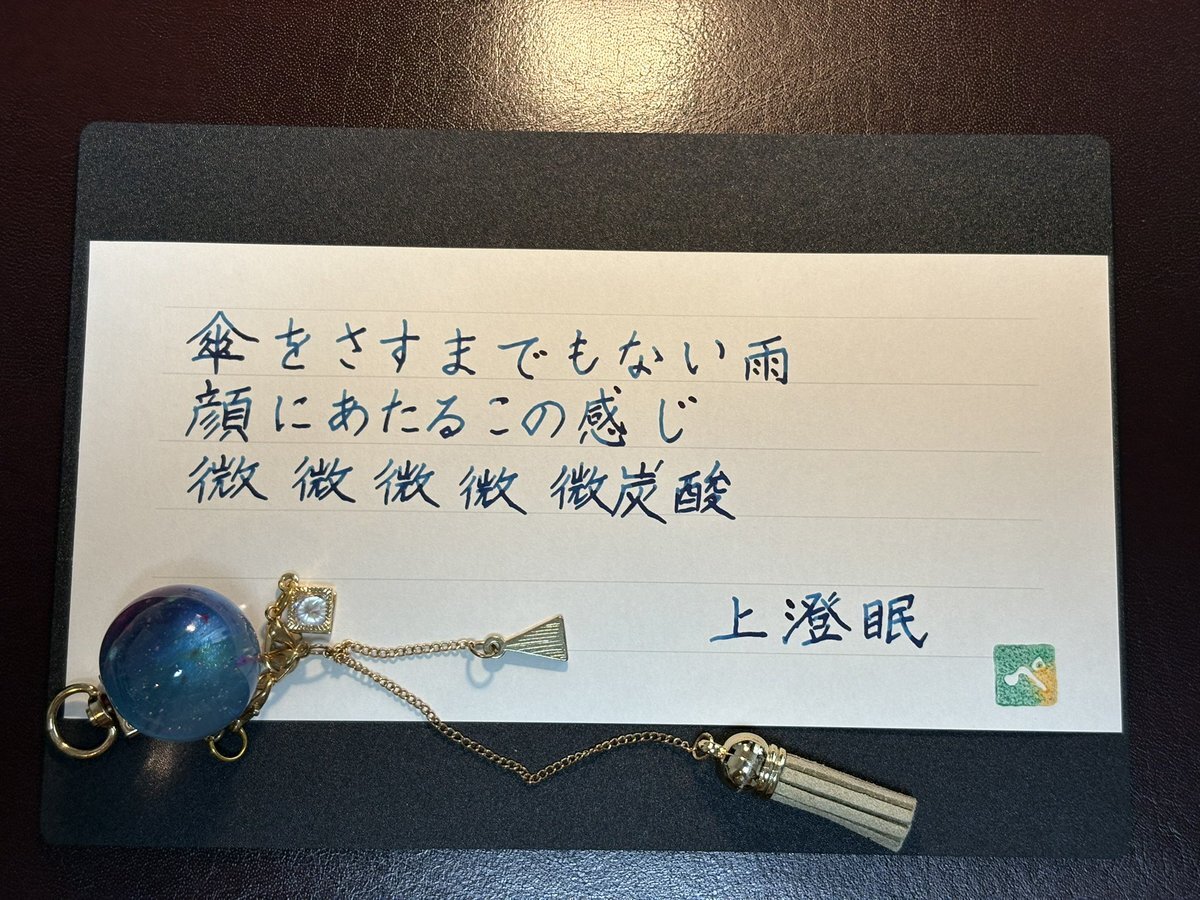 傘をさすまでもない雨
顔にあたるこの感じ
微微微微微炭酸
上澄眠
ぺ